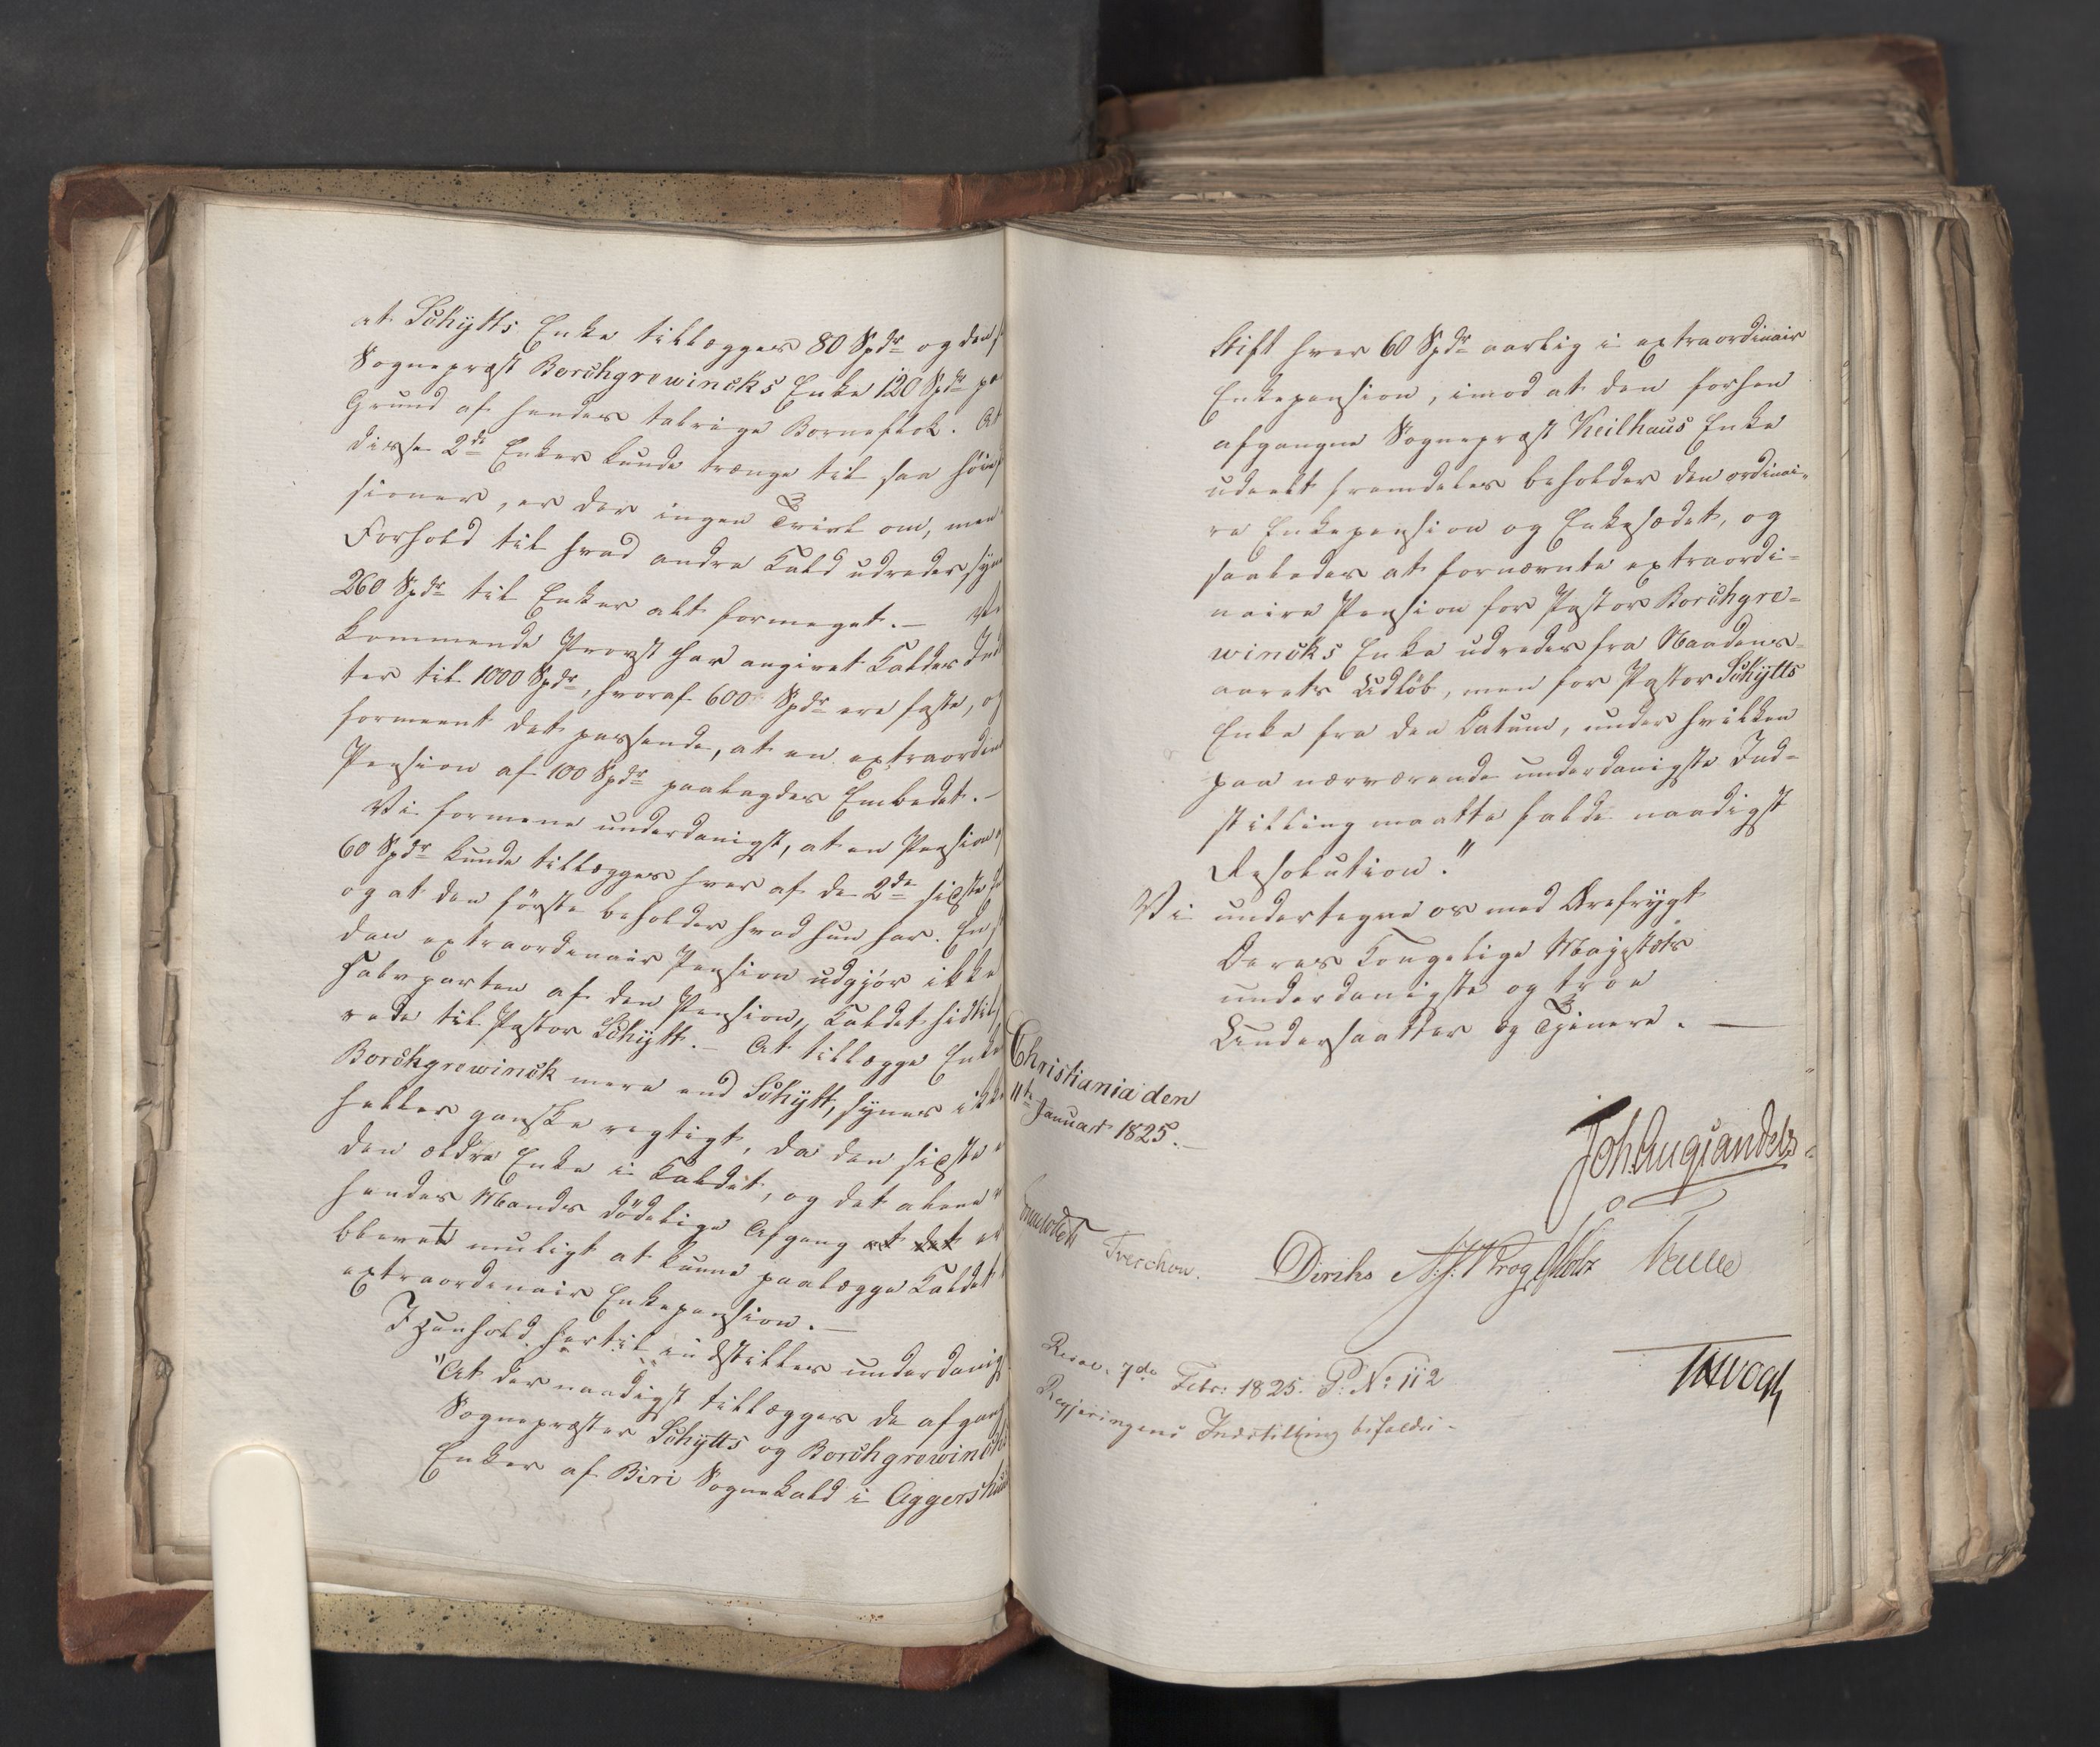 at Schÿtts Enke tillægges 80 Spdr og den
Sogneprest Borchgrewincks Enke 120 Spdr pa
Grund af hendes talrige Børneflok. At
disse 2de Enker kunde trænge til saa høie
sioner, er der ingen Tvivl om, men
Forhold til hvad andre Kald udreder, syn
260 Spdr til Enker alt formeget. —
kommende Provst har angivet Kaldets Ind
ter til 1000 Spdr, hvoraf 600 Spdr ere faste, og
formeent det passende, at en extraorden
Pension af 100 Spdr paalagdes Embedet. —
Vi formene underdanigst, at en Pension
60 Spdr kunde tillægges hver af de 2de sidste
og at den første beholder hvad hun har. En
dan extraordenair Pension udgjør ikke
halvparten af den Pension, Kaldet hidtil
rede til Pastor Schÿtt. — At tillægge Enke
Borchgrewinck mere end Schÿtt, synes ikke
heller ganske rigtigt, da den sidste
den ældre Enke i Kaldet, og det alene
hendes Mands dødelige Afgang at det er
blevet muligt at kunne paalægge Kaldet
extraordenair Enkepension. —
I Henhold hertil indstilles underdanigst
"At der naadigst tillægges de afgang
Sogneprester Schÿtts og Borchgrewincks
Enker af Biri Sognekald i Aggershuus
Stift hver 60 Spdr aarlig i extraordinair
Enkepension, imod at den forhen
afgangne Sogneprest Keilhaus Enke
udeelt fremdeles beholder den ordinai-
re Enkepension og Enkesædet, og
saaledes at fornævnte extraordi-
naire Pension for Pastor Borchgre-
wincks Enke udredes fra Naadens-
aarets Udløb, men for Pastor Schÿtts
Enke fra den Datum, under hvilken
paa nærværende underdanigste Ind-
stilling maatte falde naadigst
Resolution."
Vi undertegne os med Ærefrygt
Deres Kongelige Majestæts
underdanigste og troe
Undersaatter og Tjenere. —
Christiania den
11te Januar 1825. —
Joh Aug Sandels
Treschow.
Diriks N. J. Krog
JHVogt
Resol. 7de Febr: 1825. P: No 112
Regjeringens Indstilling bifaldes